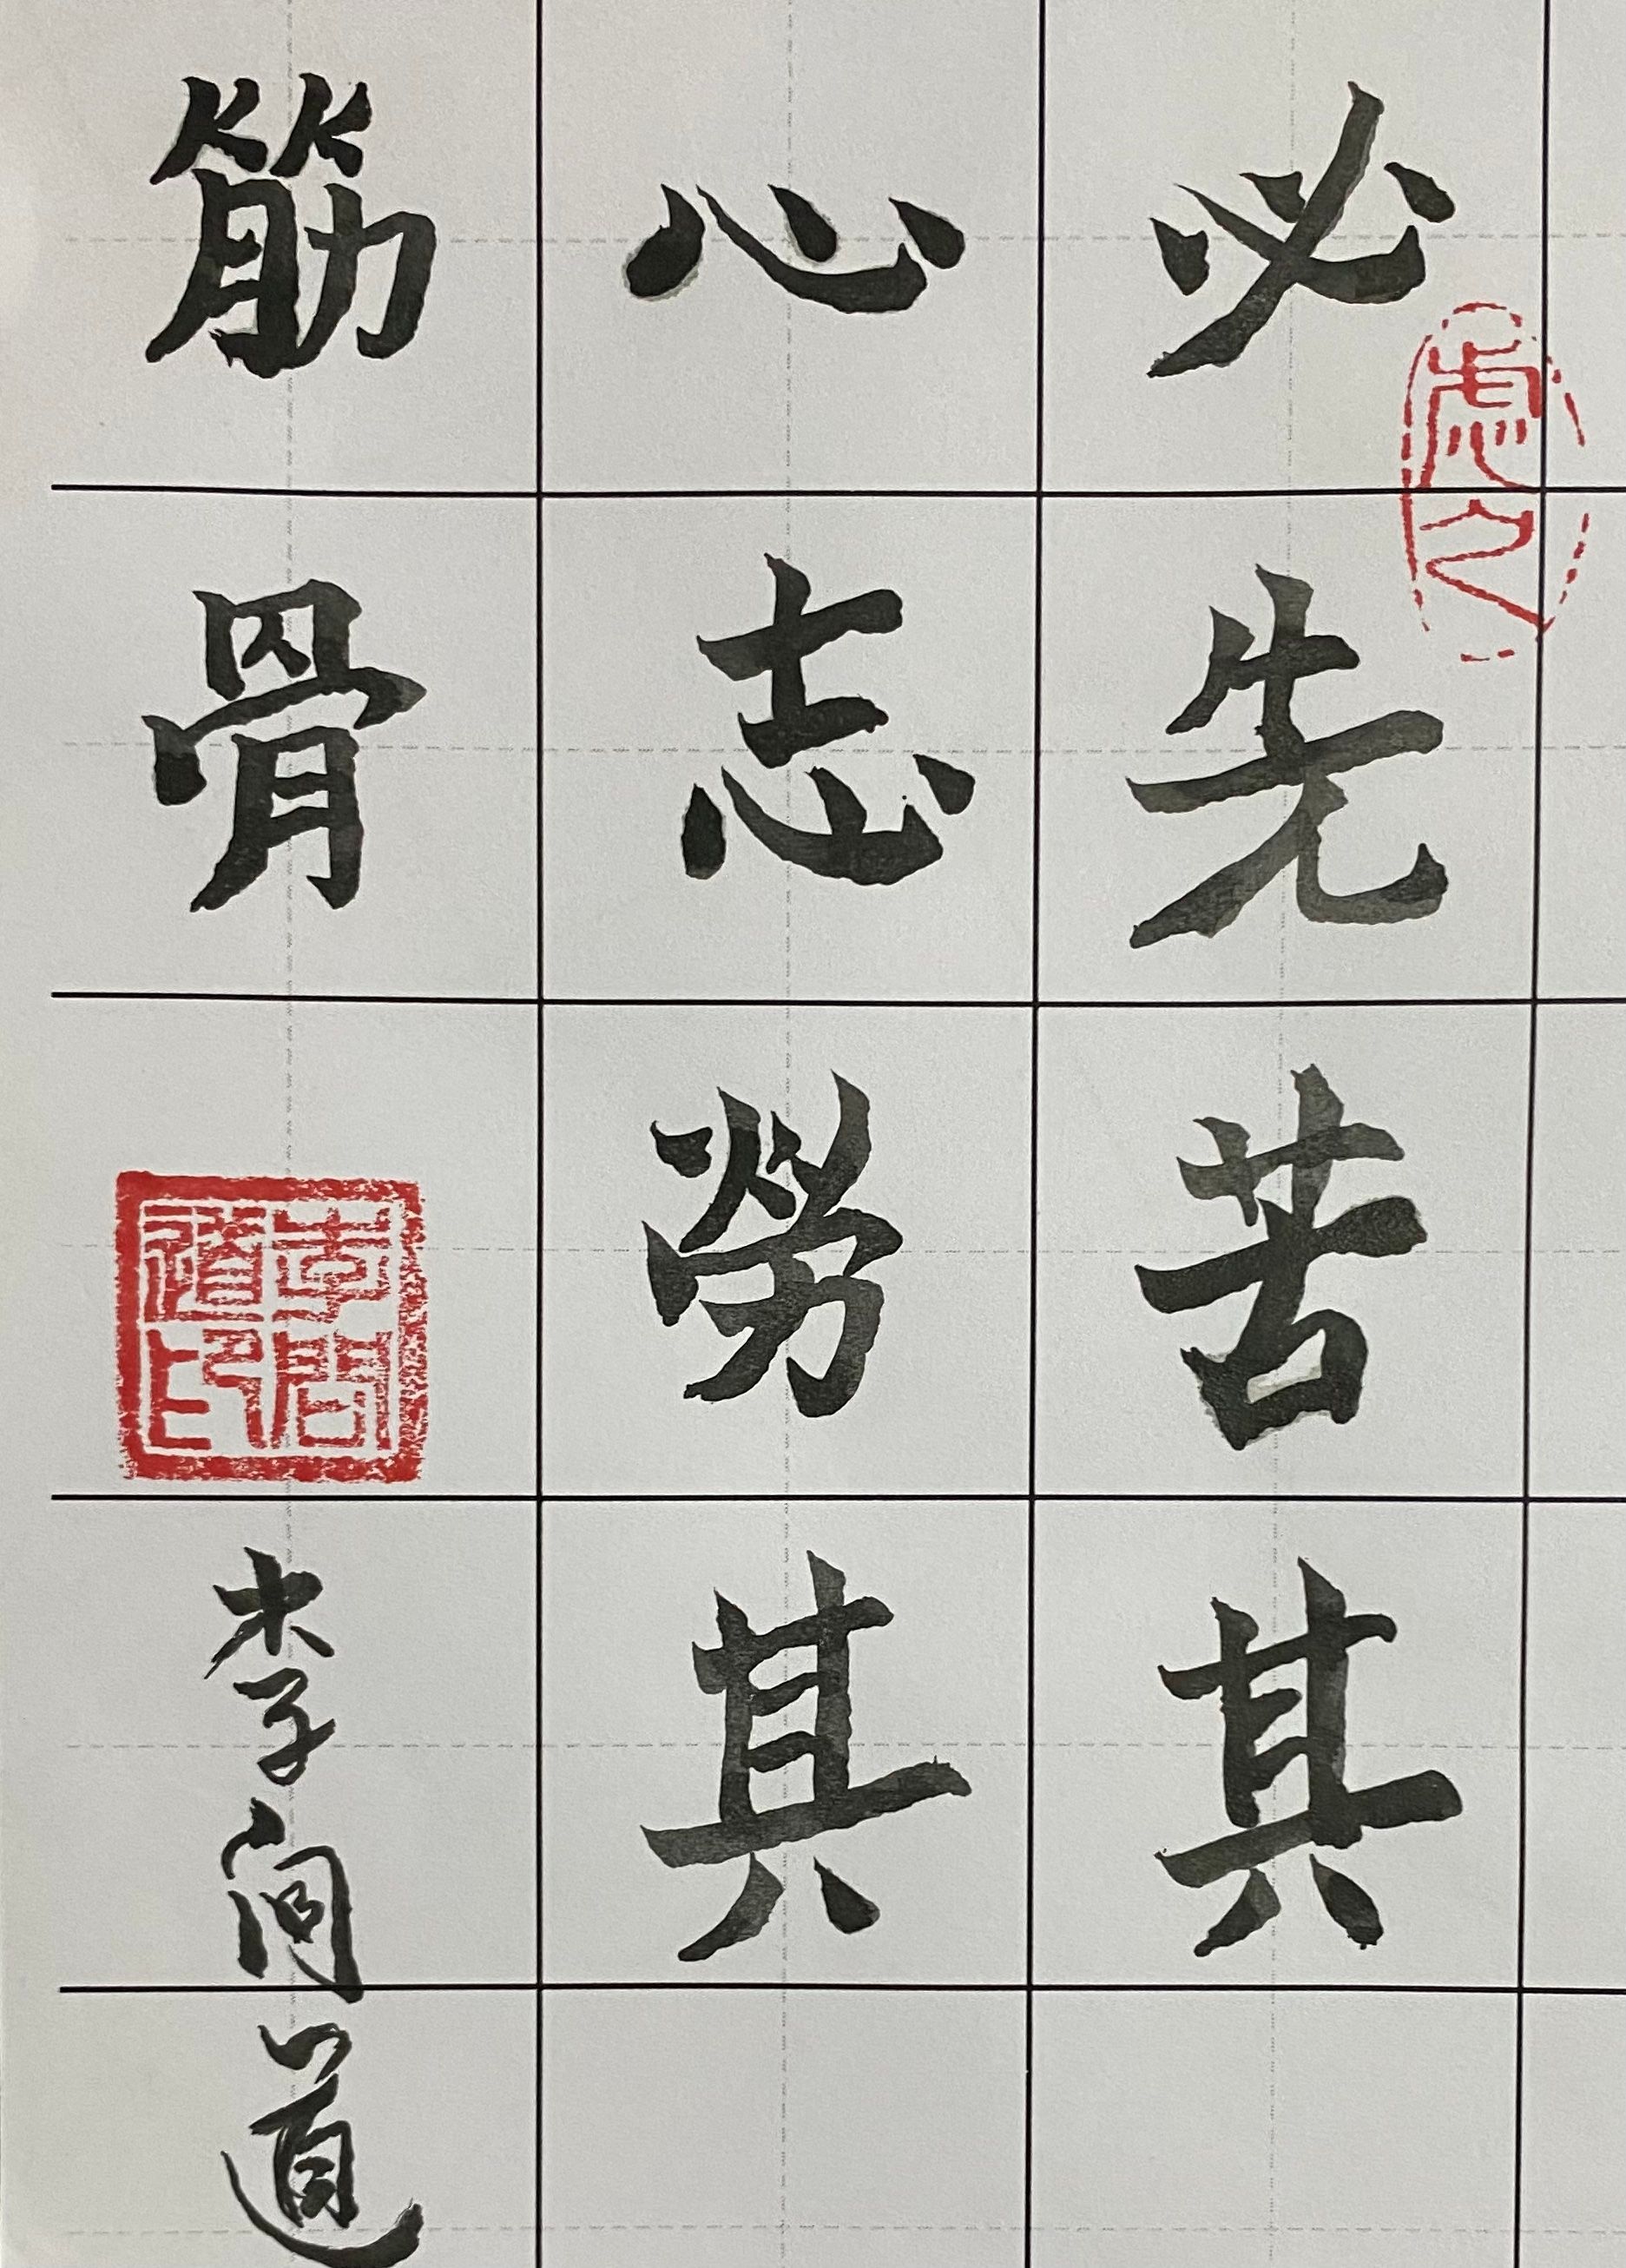 必先苦其
心志勞其
筋骨
李问道
虚之
李問道印